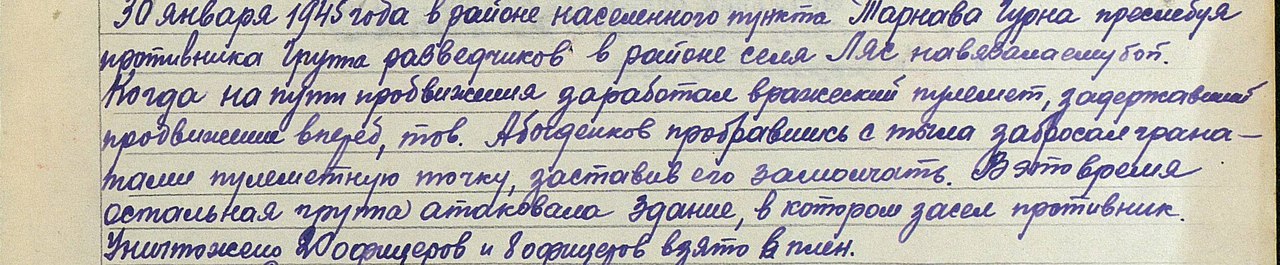 30 января 1945 года в районе населенного пункта Тарнава Гурна преследуя
противника Группа разведчиков в районе села Ляс навязала ему бой.
Когда на пути продвижения заработал вражеский пулемет, задержавший
продвижение вперед, тов. Абоденков пробравшись с тыла забросал грана-
тами пулеметную точку, заставив его замолчать. В это время
остальная группа атаковала здание, в котором засел противник.
Уничтожено 20 офицеров и 8 офицеров взято в плен.